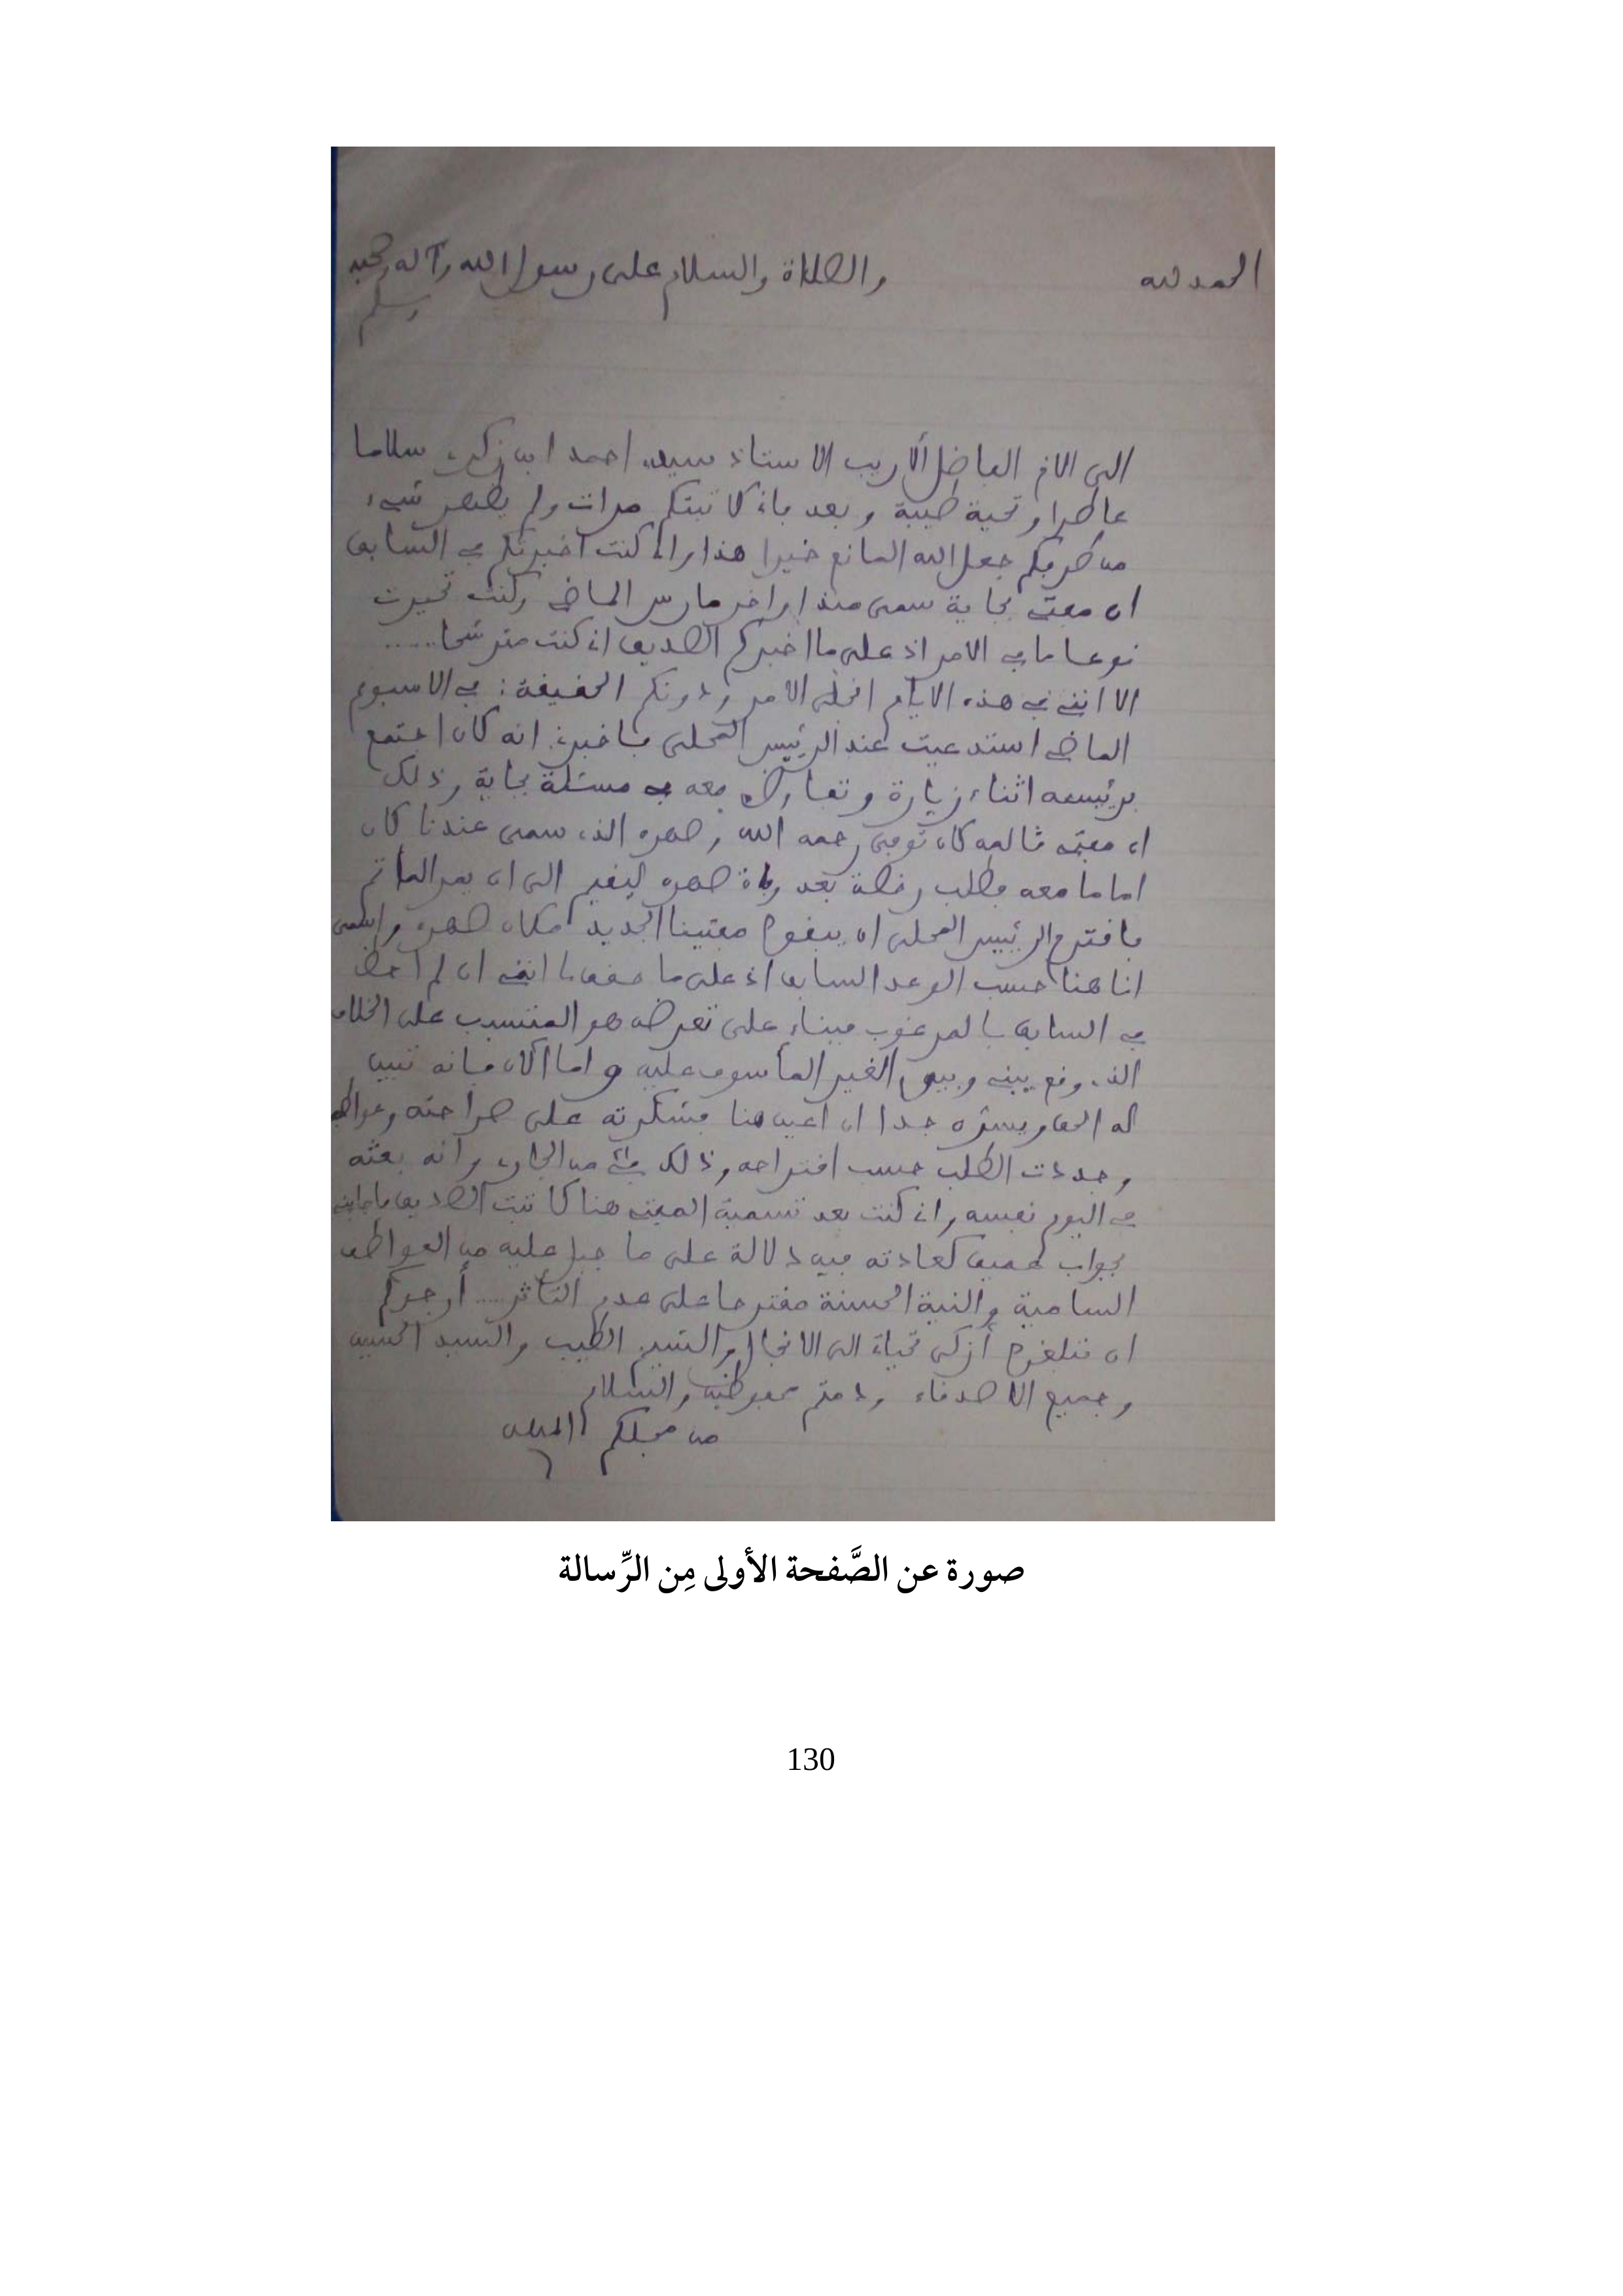 الحمد لله والصلاة والسلام على رسول الله وآله وصحبه
وسلم
الى الاخ الفاضل الأريب الاستاذ سيدي احمد ابن زكري سلاما
عاطرا وتحية طيبة وبعد فانى كاتبتكم مرات ولم يظهر شيء
من طرفكم جعل الله المانع خيرا هذا وانى كنت اخبرتكم في السابق
ان مفتي بجاية سمى منذ اواخر مارس الماضي وكنت تحيرت
نوعا ما في الامر اذ على ما اخبركم الصديق انى كنت مترشحا .....
الا اننى في هذه الايام انجلى الامر ودونكم الحقيقة: في الاسبوع
الماضي استدعيت عند الرئيس المحلى فاخبرنى انه كان اجتمع
برئيسه اثناء زيارة وتفاوض معه في مسئلة بجاية وذلك
ان مفتي قالمه كان توفى رحمه الله وصهره الذى سمى عندنا كان
اماما معه فطلب رخصة بعد وفاة صهره ليقيم الى ان يمر المأتم
فاقترح الرئيس المحلى ان يعوض مفتينا الجديد مكان صهره واسمى
انا هنا حسب الوعد السابق اذ على ما اننى ان لم احظ
في السابق بالمرغوب فبناء على تعرض هو المتسبب على الخلاف
الذى وقع بينه وبين الغير المأسوف عليه واما الآن فانه تبين
له الحق ويسره جدا ان اعين هنا فشكرته على صراحته وعواطفه
وجددت الطلب حسب اقتراحه وذلك في من الجارى وانه بعثه
في اليوم نفسه وانى كنت بعد تسمية المفتى هنا كاتبت الصديق فاجابنى
بجواب عميق كعادته فيه دلالة على ما جبل عليه من العواطف
السامية والنية الحسنة مقترحا على عدم التأثر .... أرجوكم
ان تبلغوا أزكى تحياتى الى الانجال والسيد الطيب والسيد الحسين
وجميع الاصدقاء ودمتم محفوظين والسلام
من محبكم
صورة عن الصَّفحة الأولى مِن الرِّسالة
130